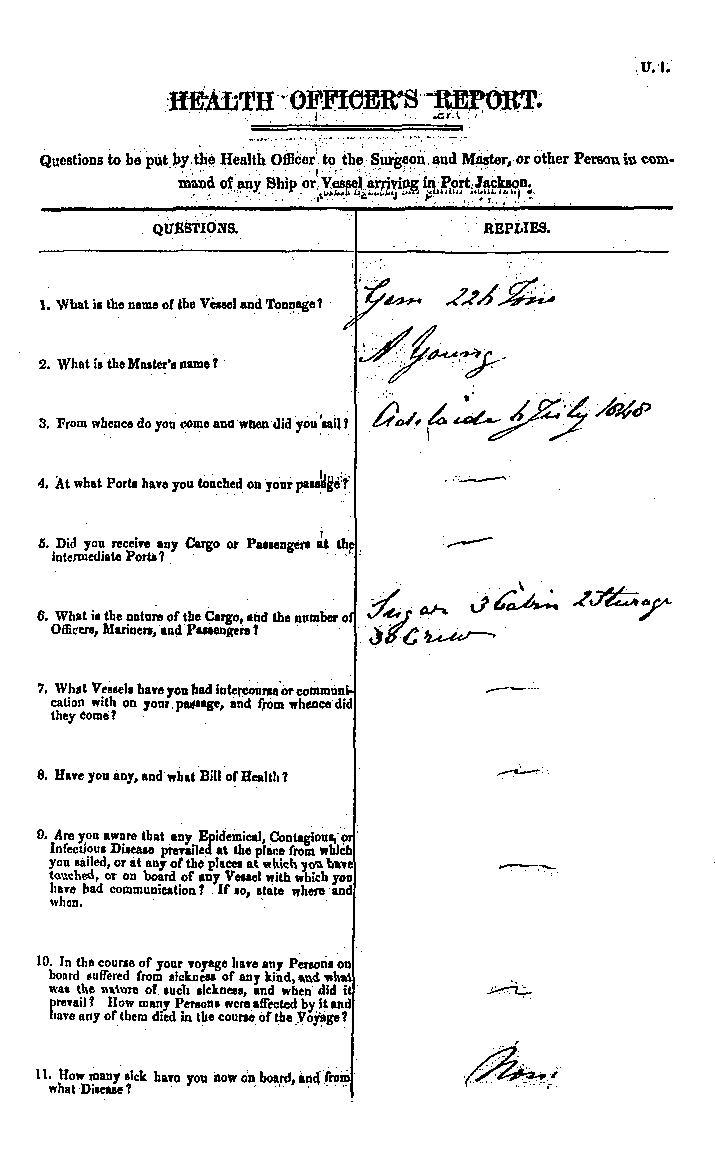 U. 1.
HEALTH OFFICER'S REPORT.
Questions to be put by the Health Officer to the Surgeon and Master, or other Person in com-
mand of any Ship or Vessel arriving in Port Jackson.
QUESTIONS. REPLIES.
1. What is the name of the Vessel and Tonnage? Gem Tons
2. What is the Master's name? Young
3. From whence do you come and when did you sail? Adelaide 6 July 1848
4. At what Ports have you touched on your passage? —
5. Did you receive any Cargo or Passengers at the —
intermediate Ports?
6. What is the nature of the Cargo, and the number of Sugar 3 Cabin 2 Sturage
Officers, Mariners, and Passengers? Crew
7. What Vessels have you had intercourse or communi- —
cation with on your passage, and from whence did
they come?
8. Have you any, and what Bill of Health? —
9. Are you aware that any Epidemical, Contagious, or
Infectious Disease prevailed at the place from which
you sailed, or at any of the places at which you have —
touched, or on board of any Vessel with which you
have had communication? If so, state where and
when.
10. In the course of your voyage have any Persons on
board suffered from sickness of any kind, and what
was the nature of such sickness, and when did it —
prevail? How many Persons were affected by it and
have any of them died in the course of the Voyage?
11. How many sick have you now on board, and from None
what Disease?